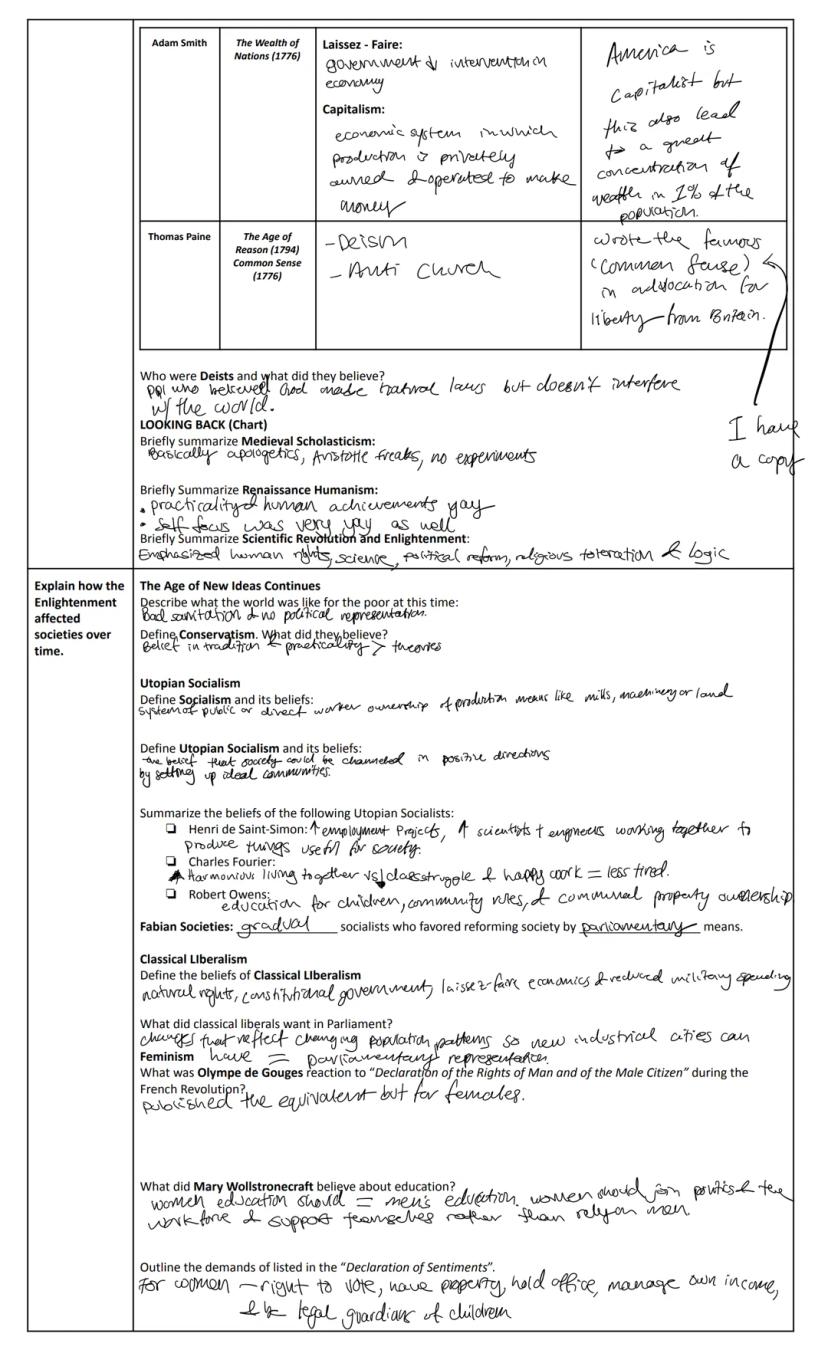 Adam Smith
The Wealth of
Nations (1776)
Laissez - Faire:
government ↓ intervention in
economy
Capitalism:
economic system in which
production is privately
owned & operated to make
money
America is
capitalist but
this also lead
to a great
concentration of
wealth in 1% of the
population.
Thomas Paine
The Age of
Reason (1794)
Common Sense
(1776)
-Deism
-Anti Church
wrote the famous
(Common Sense)
in advocation for
liberty from Britain.
I have
a copy
Who were Deists and what did they believe?
ppl who believed God made natural laws but doesn't interfere
w/ the world.
LOOKING BACK (Chart)
Briefly summarize Medieval Scholasticism:
Basically apologetics, Aristotle freaks, no experiments
Briefly Summarize Renaissance Humanism:
• practicality & human achievements yay
• self focus was very yay as well
Briefly Summarize Scientific Revolution and Enlightenment:
Emphasized human rights, science, political reform, religious toleration & logic
Explain how the
Enlightenment
affected
societies over
time.
The Age of New Ideas Continues
Describe what the world was like for the poor at this time:
Bad sanitation & no political representation.
Define Conservatism. What did they believe?
Belief in tradition & practicality > theories
Utopian Socialism
Define Socialism and its beliefs:
system of public or direct worker ownership of production means like mills, machinery or land
Define Utopian Socialism and its beliefs:
the belief that society could be channeled in positive directions
by setting up ideal communities.
Summarize the beliefs of the following Utopian Socialists:
❏ Henri de Saint-Simon: ↑ employment projects, ↑ scientists + engineers working together to
produce things useful for society.
❏ Charles Fourier:
Harmonious living together vs class struggle & happy work = less tired.
❏ Robert Owens:
education for children, community rules, & communal property ownership
Fabian Societies: gradual socialists who favored reforming society by parliamentary means.
Classical LIberalism
Define the beliefs of Classical LIberalism
natural rights, constitutional government, laissez-faire economics & reduced military spending
What did classical liberals want in Parliament?
changes that reflect changing population patterns so new industrial cities can
have = parliamentary representation.
Feminism
What was Olympe de Gouges reaction to "Declaration of the Rights of Man and of the Male Citizen" during the
French Revolution?
published the equivalent but for females.
What did Mary Wollstronecraft believe about education?
women education should = men's education. women should join politics & the
workforce & support themselves rather than rely on men.
Outline the demands of listed in the "Declaration of Sentiments".
For women - right to vote, have property, hold office, manage own income,
& be legal guardians of children